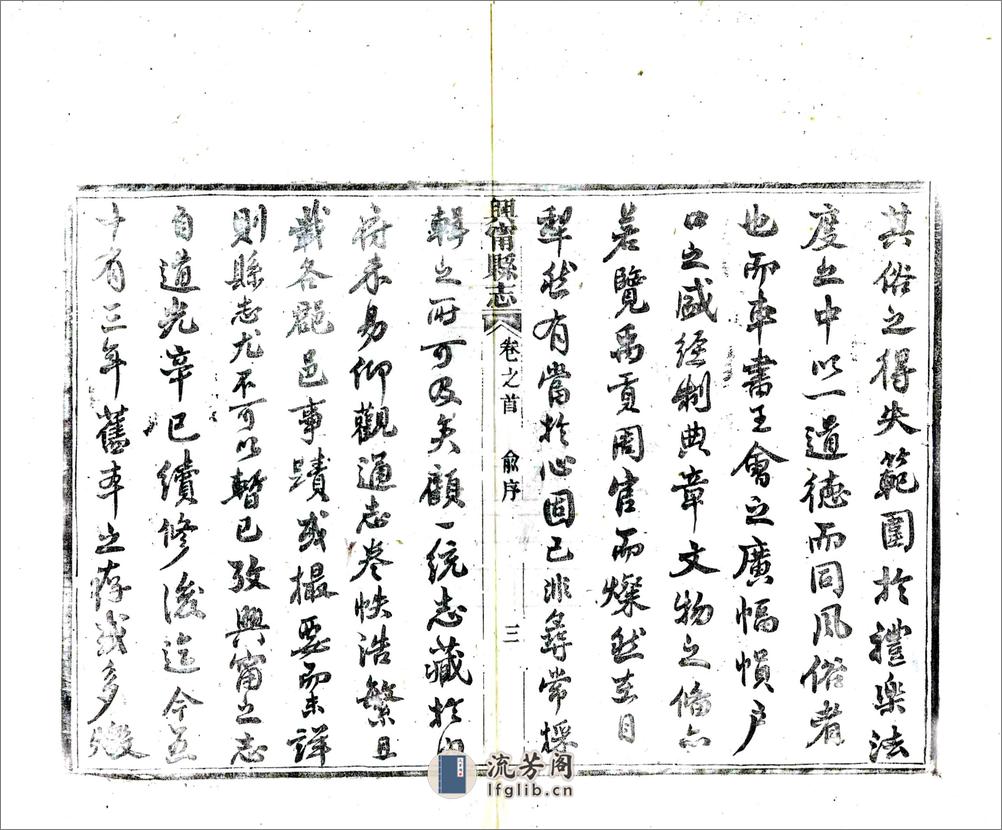 其俗之得失範圍於禮樂法
度之中以一道德而同風俗者
也而車書王會之廣幅幀户
口之盛經制典章文物之備亦
若覽禹貢周官而燦然在目
犁然有當於心固已非尋常採
興甯縣志 卷之首 俞序 三
輯之所可及矣顧一統志藏於
府未易仰觀通志卷帙浩繁且
載各郡邑事蹟或撮要而未詳
則縣志尤不可以暫已攷興甯之志
自道光辛巳續修後迄今五
十有三年舊本之存或多燬
流芳阁
lfglib.cn